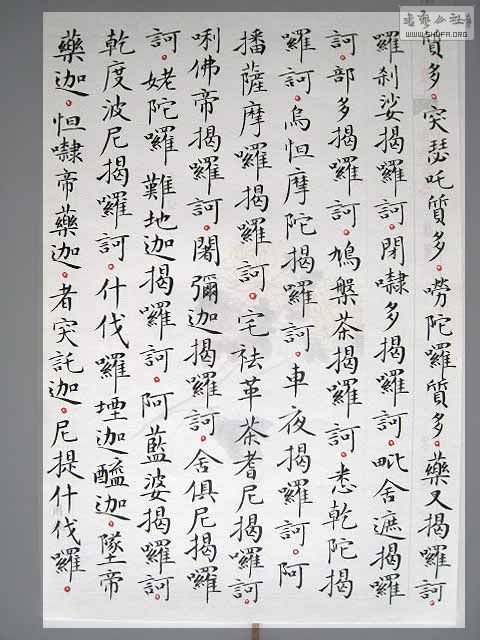 質多.突瑟吒質多.嘮陀囉質多.藥叉揭囉訶.
羅剎娑揭囉訶.閉㘑多揭囉訶.毗舍遮揭囉
訶.部多揭囉訶.鳩槃茶揭囉訶.悉乾陀揭
囉訶.烏怛摩陀揭囉訶.車夜揭囉訶.阿
播薩摩囉揭囉訶.宅祛革茶耆尼揭囉訶.
唎佛帝揭囉訶.闍彌迦揭囉訶.舍俱尼揭囉
訶.姥陀囉難地迦揭囉訶.阿藍婆揭囉訶
乾度波尼揭囉訶.什伐囉堙迦醯迦.墜帝
藥迦.怛㘑帝藥迦.者突託迦.尼提什伐囉.
WWW.SHUFA.ORG